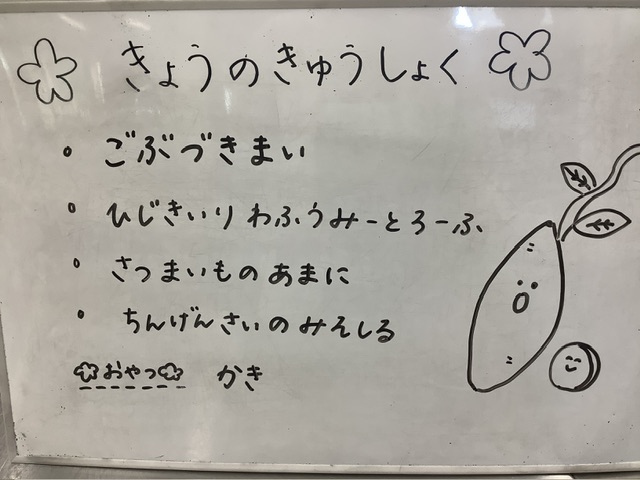 きょうのきゅうしょく
・ ごぶづきまい
・ ひじきいり わふうみーとろーふ
・ さつまいものあまに
・ ちんげんさいのみそしる
おやつ かき